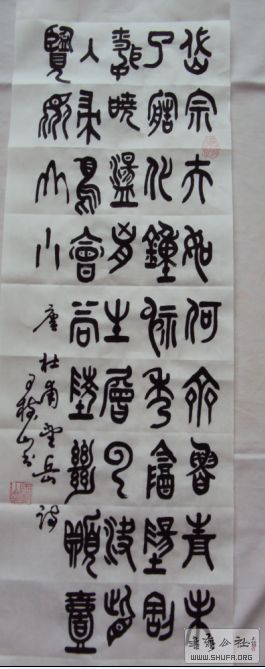 岱宗夫如何齊魯青未
了造化鍾神秀陰陽割
昏曉盪胸生層云決眥
入歸鳥會當陵絕頂壹
覽眾山小
唐杜甫望岳詩
書法公社
WWW.SHUFA.ORG